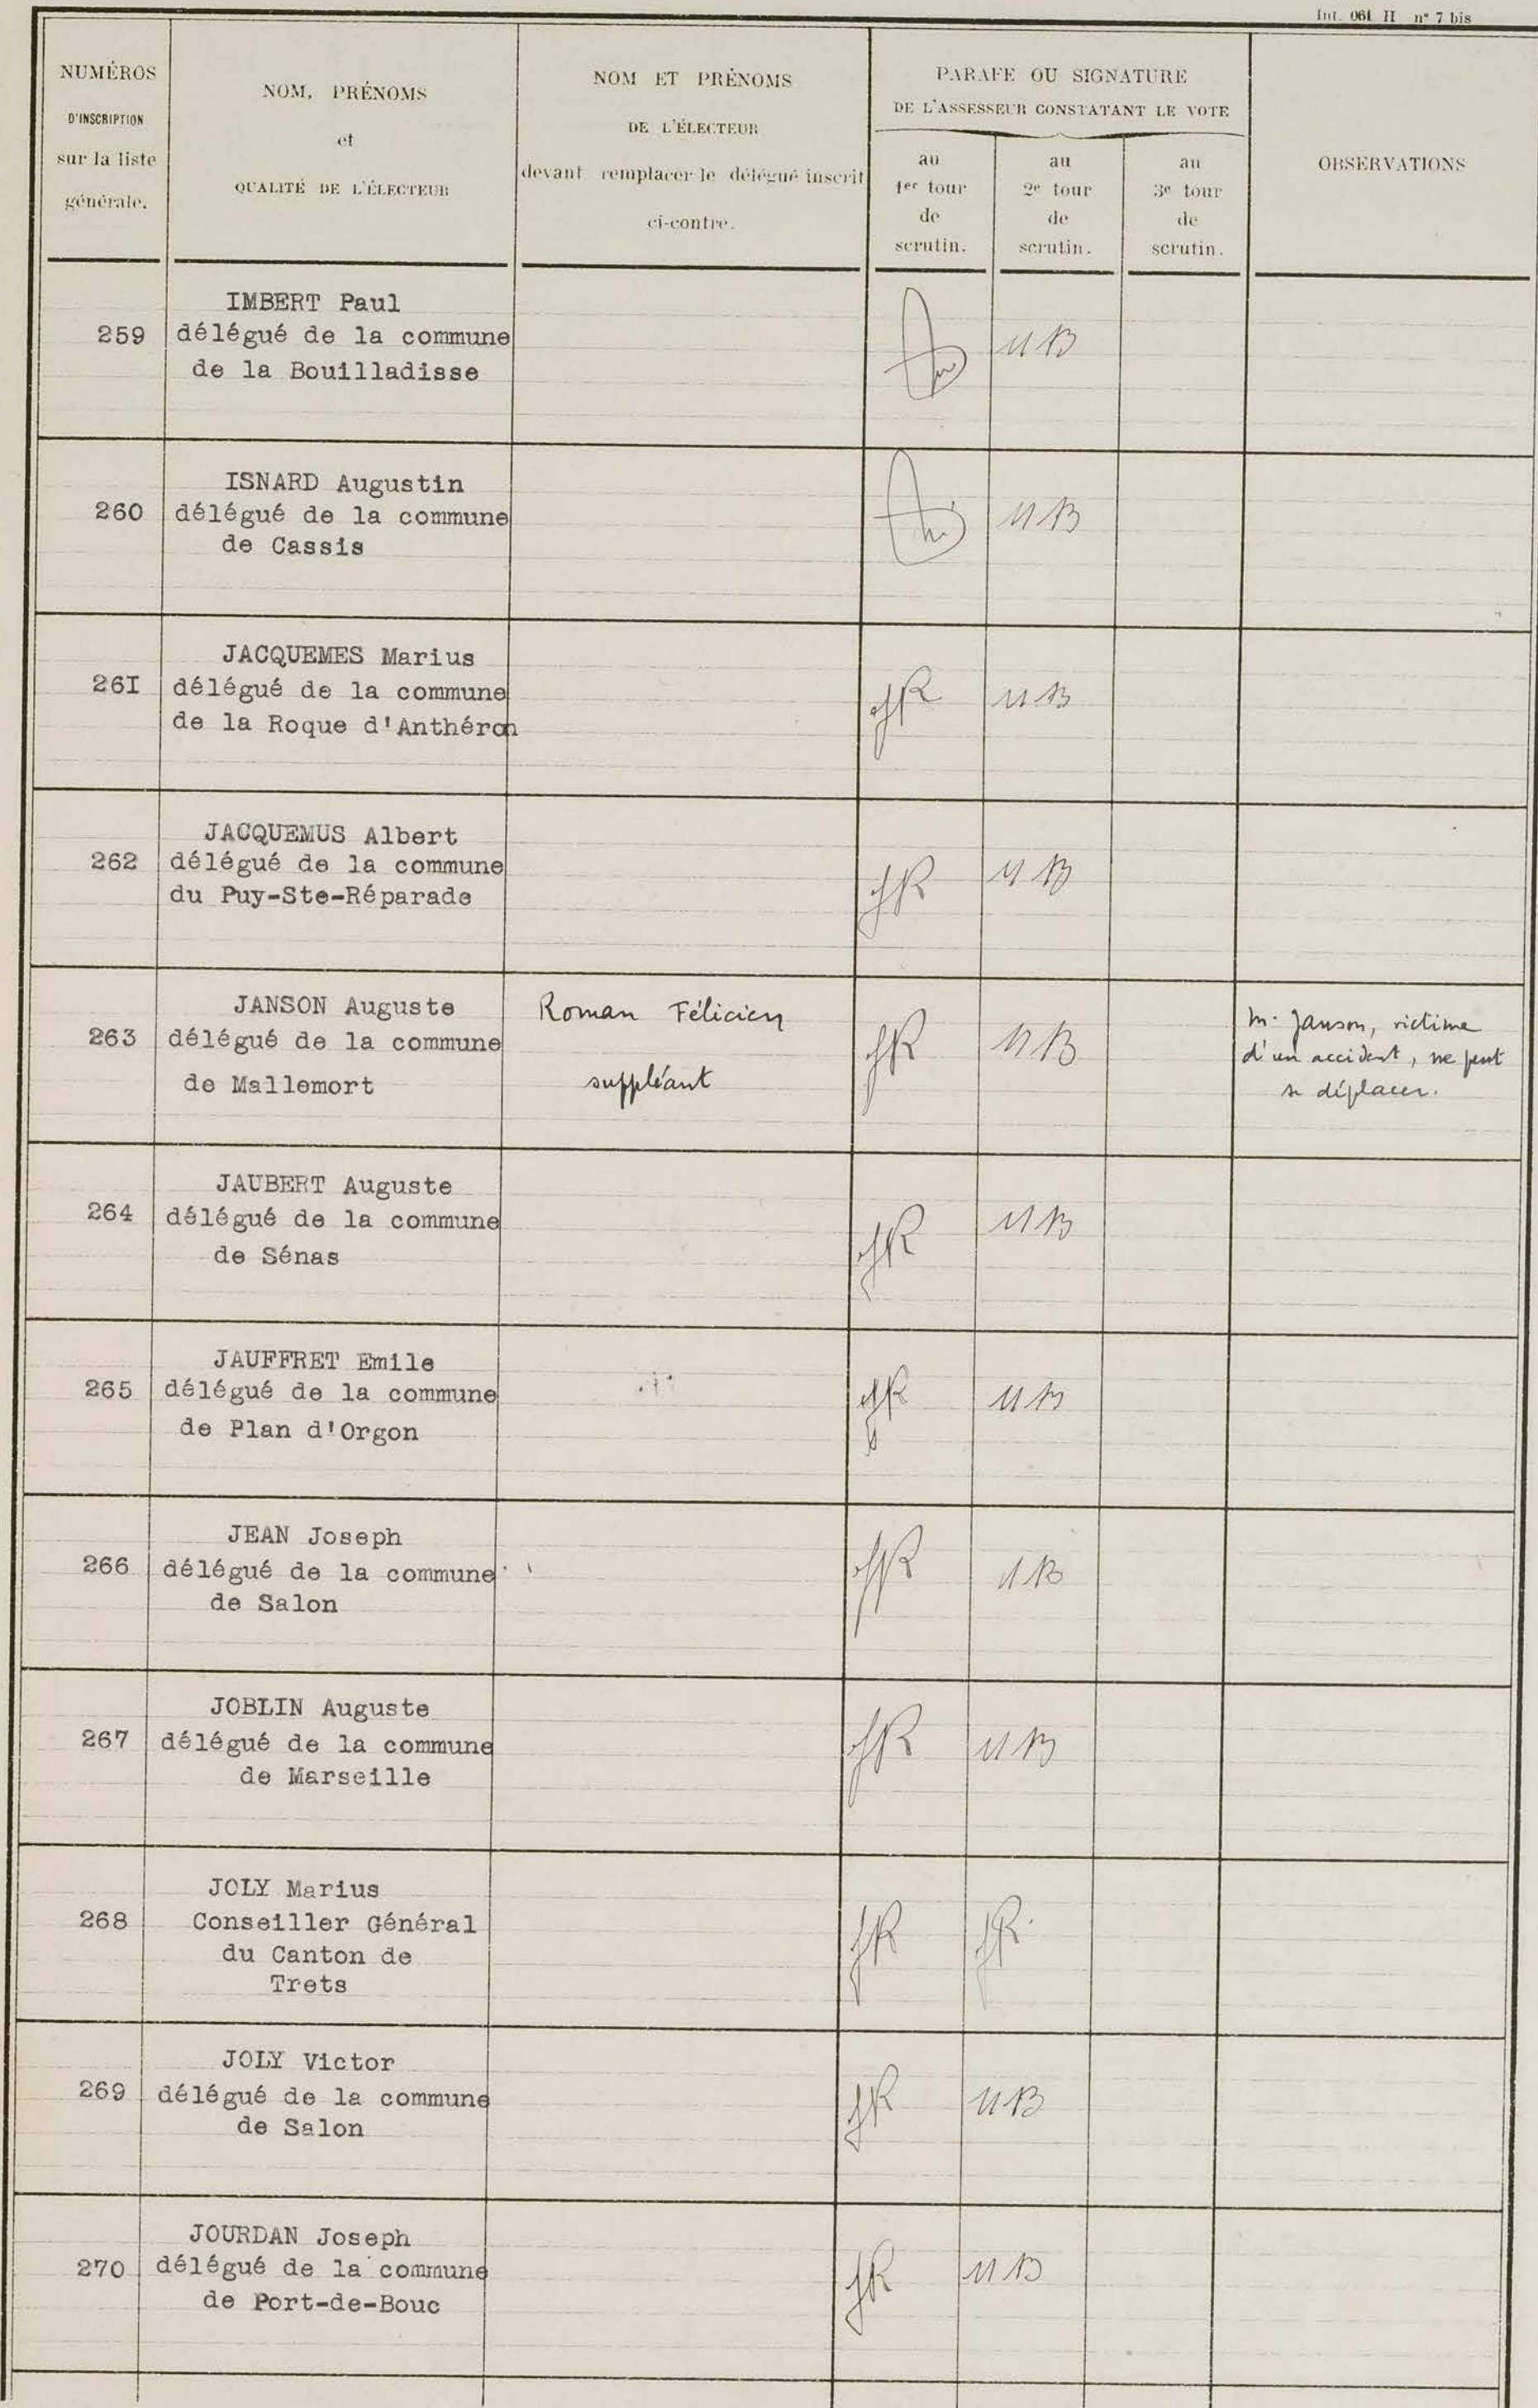 Int. 061 II n° 7 bis
NUMÉROS
D'INSCRIPTION
sur la liste
générale.
NOM, PRÉNOMS
et
QUALITÉ DE L'ÉLECTEUR
NOM ET PRÉNOMS
DE L'ÉLECTEUR
devant remplacer le délégué inscrit
ci-contre.
PARAFE OU SIGNATURE
DE L'ASSESSEUR CONSTATANT LE VOTE
au
1er tour
de
scrutin.
au
2e tour
de
scrutin.
au
3e tour
de
scrutin.
OBSERVATIONS
IMBERT Paul
259 délégué de la commune
de la Bouilladisse
ISNARD Augustin
260 délégué de la commune
de Cassis
JACQUEMES Marius
26I délégué de la commune
de la Roque d'Anthéron
JACQUEMUS Albert
262 délégué de la commune
du Puy-Ste-Réparade
JANSON Auguste
263 délégué de la commune
de Mallemort
Roman Félicien
suppléant
M. Janson, victime
d'un accident, ne peut
se déplacer.
JAUBERT Auguste
264 délégué de la commune
de Sénas
JAUFFRET Emile
265 délégué de la commune
de Plan d'Orgon
JEAN Joseph
266 délégué de la commune
de Salon
JOBLIN Auguste
267 délégué de la commune
de Marseille
JOLY Marius
268 Conseiller Général
du Canton de
Trets
JOLY Victor
269 délégué de la commune
de Salon
JOURDAN Joseph
270 délégué de la commune
de Port-de-Bouc